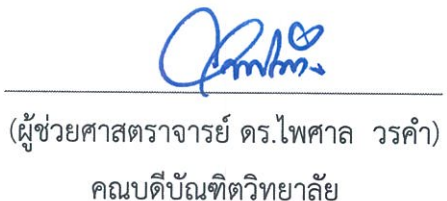 (ผู้ช่วยศาสตราจารย์ ดร.ไพศาล วรคำ)
คณบดีบัณฑิตวิทยาลัย